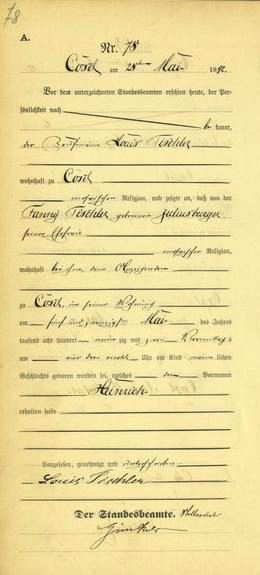 78
A.
Nr. 78
Cosel am 28ten Mai 1892.
Vor dem unterzeichneten Standesbeamten erschien heute, der Per-
sönlichkeit nach
be kannt,
der Kaufmann Louis Tischler
wohnhaft zu Cosel
mosaischer Religion, und zeigte an, daß von der
Fanny Tischler geborenen Juliusburger
seiner Ehefrau
mosaischer Religion,
wohnhaft bei ihm, dem Anzeigenden
zu Cosel in seiner Wohnung
am fünf und zwanzigsten Mai des Jahres
tausend acht hundert neunzig und zwei Vormittags
um vier drei viertel Uhr ein Kind männlichen
Geschlechts geboren worden sei, welches den Vornamen
Heinrich
erhalten habe
Vorgelesen, genehmigt und unterschrieben
Louis Tischler
Der Standesbeamte.
Günther